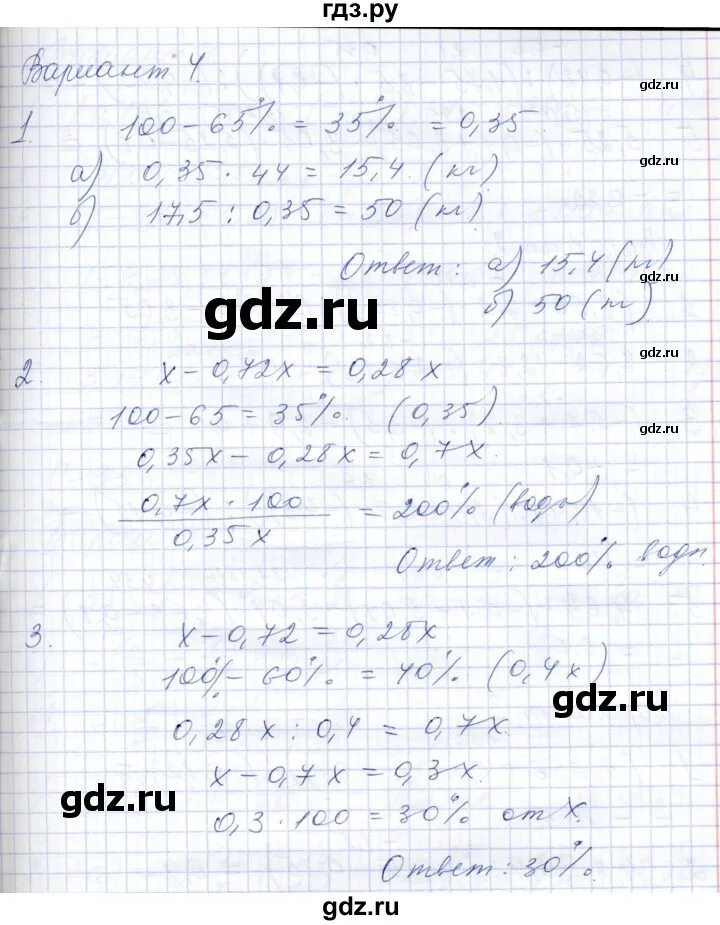 гдз.ру
Вариант 4.
gdz.ru
1. 100 - 65% = 35% = 0,35
gdz.ru
а) 0,35 · 44 = 15,4 (кг)
б) 17,5 : 0,35 = 50 (кг)
gdz.ru
Ответ: а) 15,4 (кг)
gdz.ru
б) 50 (кг)
gdz.ru
gdz.ru
2. x - 0,72x = 0,28x
100 - 65 = 35% (0,35)
gdz.ru
0,35x - 0,28x = 0,7x
0,7x · 100
gdz.ru
= 200% (воды)
0,35x
Ответ: 200% воды
gdz.ru
3. x - 0,72 = 0,28x
100% - 60% = 40% (0,4x)
gdz.ru
0,28x : 0,4 = 0,7x
x - 0,7x = 0,3x
gdz.ru
0,3 · 100 = 30% от x.
Ответ: 30%.
gdz.ru